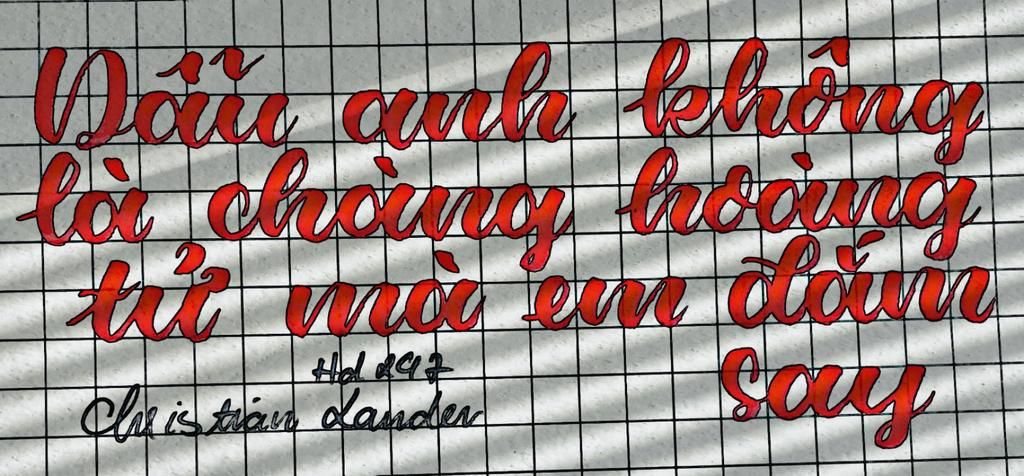 Dẫu anh không
là chàng hoàng
tử mà em đắm
say
Hd 297
Christian Lander